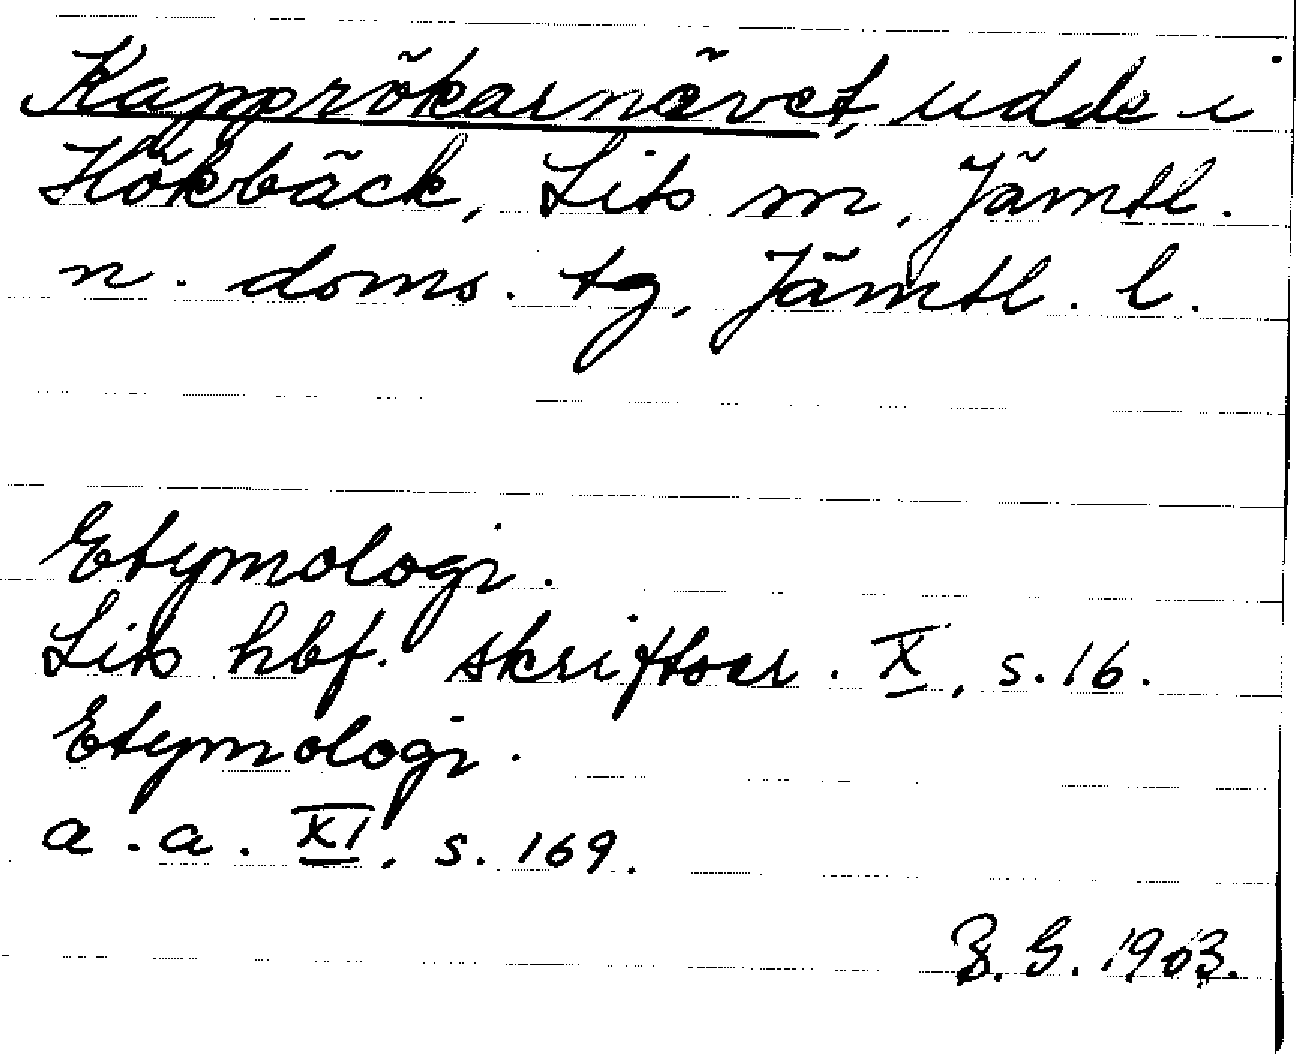 Kapprökarnävet, udde i
Hökbäck, Lits m, Jämtl.
n. doms. tg, Jämtl. l.
Etymologi.
Lits hbf. skriftser. X, s. 16.
Etymologi.
a. a. XI, s. 169.
B. G. 1963.